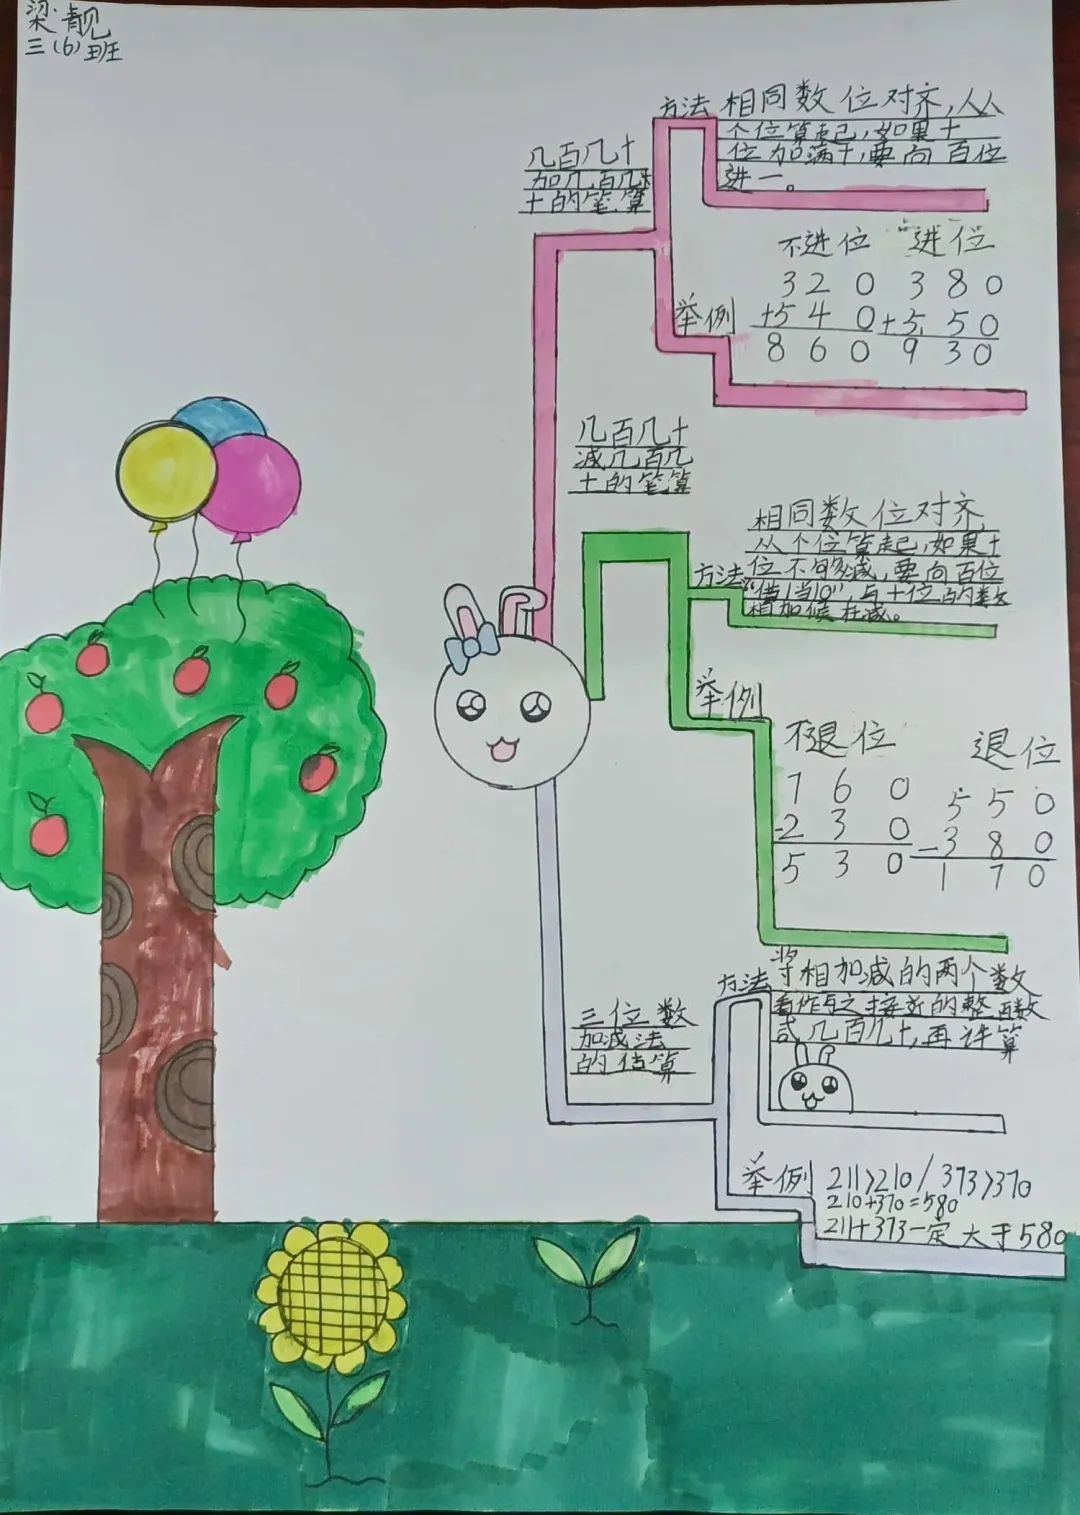 梁靓
三(6)班
几百几十
加几百几
十的笔算
方法
相同数位对齐,从
个位算起,如果十
位加满十,要向百位
进一。
举例
不进位 进位
320 380
+540 +550
860 930
几百几十
减几百几
十的笔算
方法
相同数位对齐,
从个位算起,如果十
位不够减,要向百位
“借1当10”,与十位的数
相加候在减。
举例
不退位 退位
760 550
-230 -380
530 170
三位数
加减法
的估算
方法
将相加减的两个数
看作与之接近的整百数
或几百几十,再计算
举例
211>210/373>370
210+370=580
211+373一定大于580